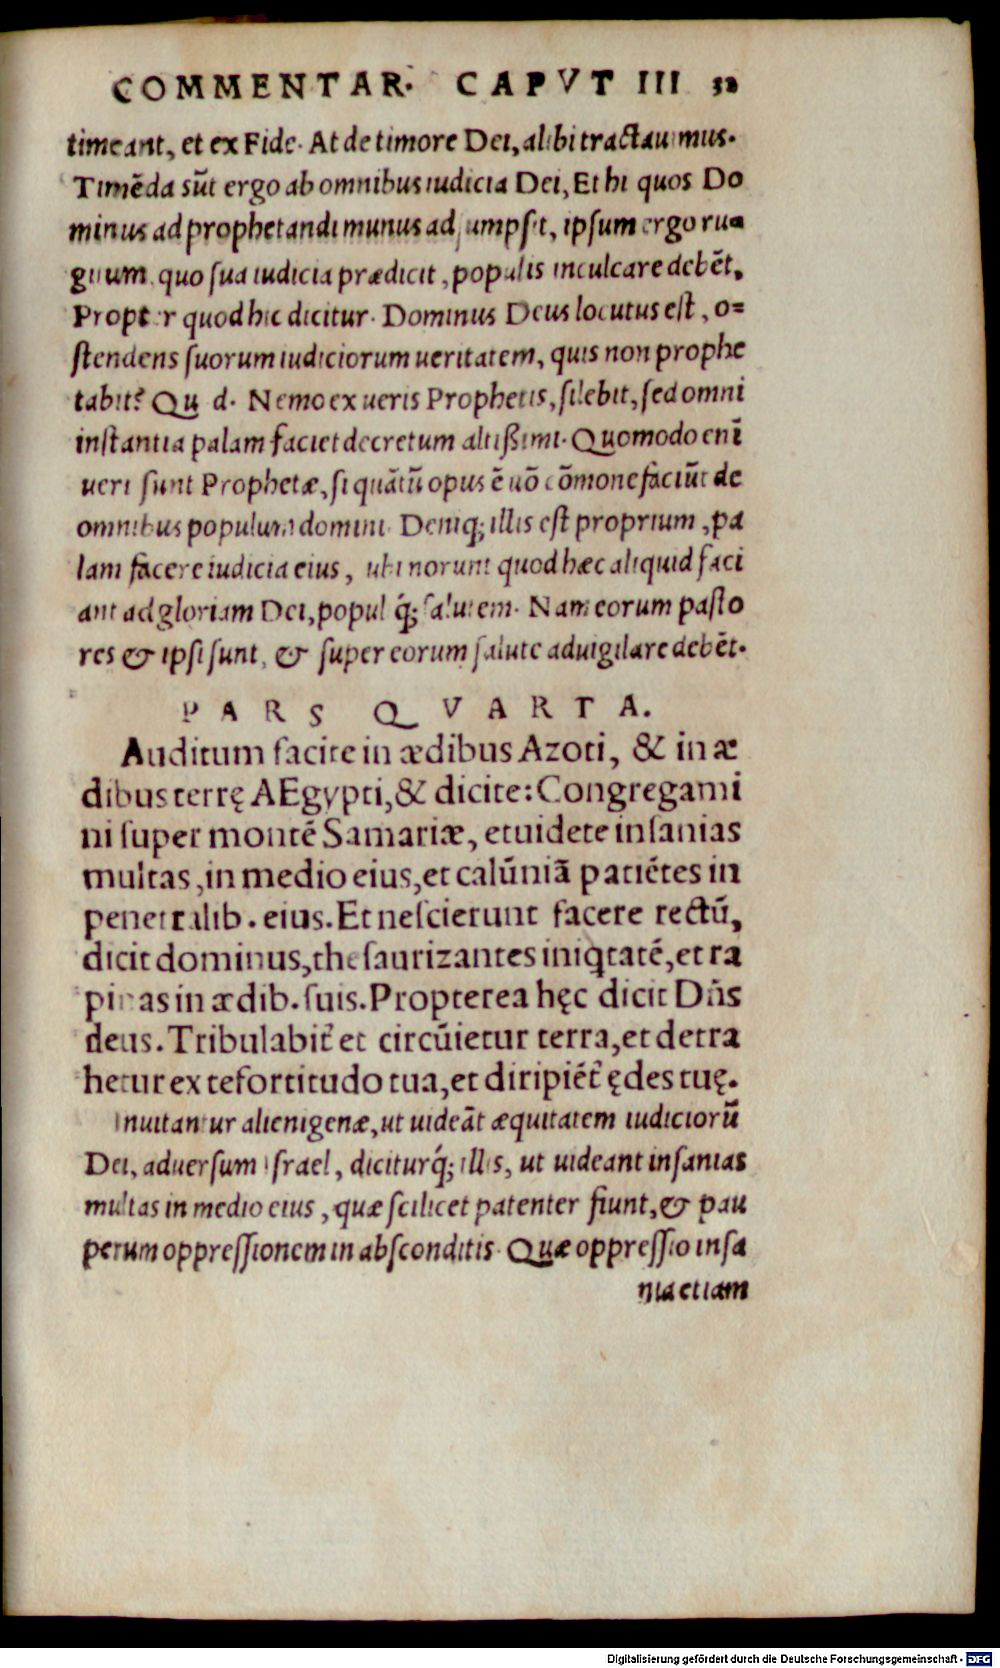 COMMENTAR. CAPVT III 32
timeant, et ex Fide. At de timore Dei, alibi tractauimus.
Timẽda sũt ergo ab omnibus iudicia Dei, Et hi quos Do
minus ad prophetandi munus adsumpsit, ipsum ergo ru=
gitum, quo sua iudicia prædicit, populis inculcare debẽt.
Propter quod hic dicitur. Dominus Deus locutus est, o=
stendens suorum iudiciorum ueritatem, quis non prophe
tabit? Qu d. Nemo ex ueris Prophetis, silebit, sed omni
instantia palam faciet decretum altißimi. Quomodo enĩ
ueri sunt Prophetæ, si quãtũ opus ẽ nõ cõmonefaciũt de
omnibus populum domini. Deniq; illis est proprium, pa
lam facere iudicia eius, ubi norunt quod hæc aliquid faci
ant ad gloriam Dei, populiq́; salutem. Nam eorum pasto
res & ipsi sunt, & super eorum salute aduigilare debẽt.
PARS QVARTA.
Auditum facite in ædibus Azoti, & in æ
dibus terrę AEgypti, & dicite: Congregami
ni super montẽ Samariæ, et uidete insanias
multas, in medio eius, et calũniã patiẽtes in
penetralib. eius. Et nescierunt facere rectũ,
dicit dominus, thesaurizantes iniqtatẽ, et ra
pinas in ædib. suis. Propterea hęc dicit Dñs
deus. Tribulabit̃ et circũietur terra, et detra
hetur ex te fortitudo tua, et diripiẽt̃ ędes tuę.
Inuitantur alienigenæ, ut uideãt æquitatem iudiciorũ
Dei, aduersum Israel, diciturq́; illis, ut uideant insanias
multas in medio eius, quæ scilicet patenter fiunt, & pau
perum oppressionem in absconditis. Quæ oppressio insa
nia etiam
Digitalisierung gefördert durch die Deutsche Forschungsgemeinschaft - DFG